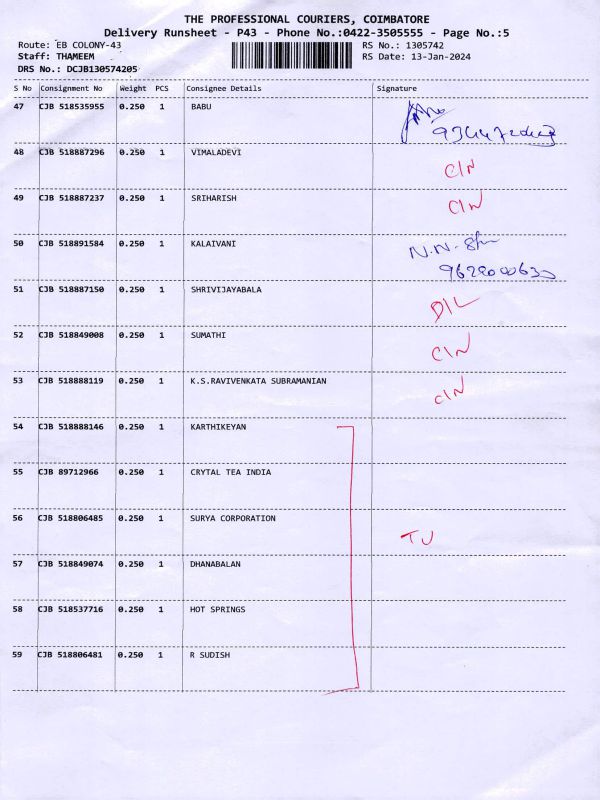 THE PROFESSIONAL COURIERS, COIMBATORE
Delivery Runsheet - P43 - Phone No.:0422-3505555 - Page No.:5
Route: EB COLONY-43 RS No.: 1305742
Staff: THAMEEM RS Date: 13-Jan-2024
DRS No.: DCJB130574205
S No Consignment No Weight PCS Consignee Details Signature
47 CJB 518535955 0.250 1 BABU
48 CJB 518887296 0.250 1 VIMALADEVI C/N
49 CJB 518887237 0.250 1 SRIHARISH C/N
50 CJB 518891584 0.250 1 KALAIVANI N.N.
51 CJB 518887150 0.250 1 SHRIVIJAYABALA D/L
52 CJB 518849008 0.250 1 SUMATHI C/N
53 CJB 518888119 0.250 1 K.S.RAVIVENKATA SUBRAMANIAN C/N
54 CJB 518888146 0.250 1 KARTHIKEYAN
55 CJB 89712966 0.250 1 CRYTAL TEA INDIA
56 CJB 518806485 0.250 1 SURYA CORPORATION TU
57 CJB 518849074 0.250 1 DHANABALAN
58 CJB 518537716 0.250 1 HOT SPRINGS
59 CJB 518806481 0.250 1 R SUDISH